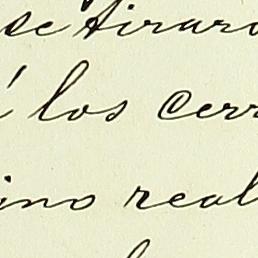 se tiraro
á los cerr
ino real